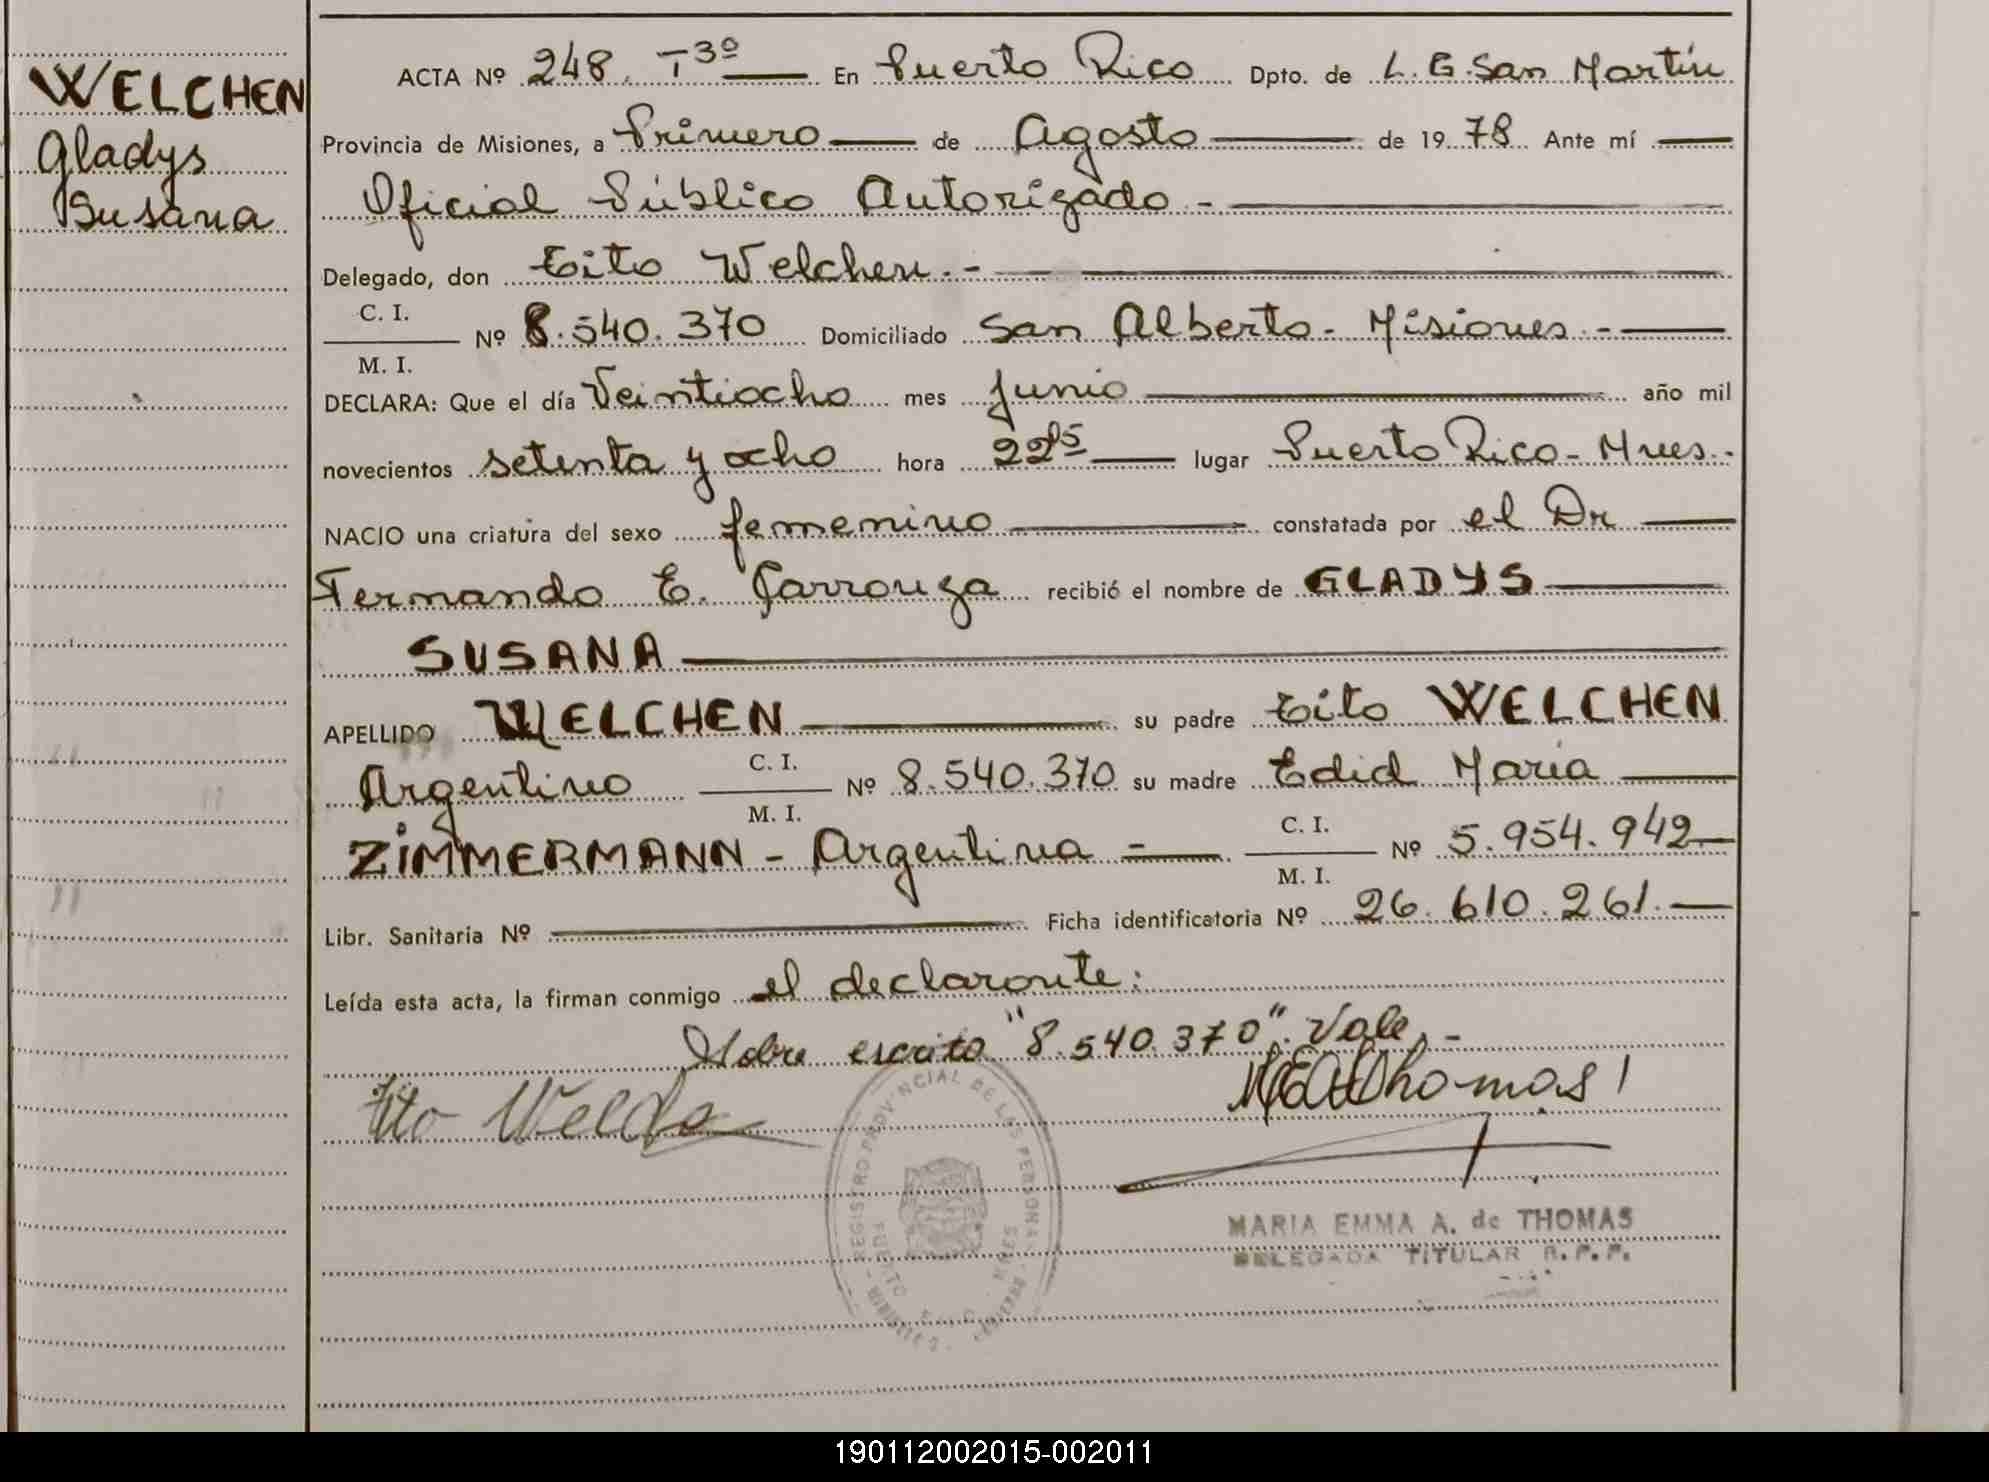 WELCHEN
Gladys
Susana
ACTA Nº 248. T3º En Puerto Rico Dpto. de L. G. San Martín
Provincia de Misiones, a Primero de Agosto de 1978 Ante mí
Oficial Público Autorizado -
Delegado, don Tito Welchen. -
C. I.
Nº 8.540.370 Domiciliado San Alberto - Misiones. -
M. I.
DECLARA: Que el día Veintiocho mes junio año mil
novecientos setenta y ocho hora 22 15 lugar Puerto Rico - Mnes.
NACIO una criatura del sexo femenino constatada por el Dr
Fernando E. Garrouza recibió el nombre de GLADYS
SUSANA
APELLIDO WELCHEN su padre Tito WELCHEN
Argentino C. I. Nº 8.540.370 su madre Edid Maria
M. I.
ZIMMERMANN - Argentina - C. I. Nº 5.954.942
M. I.
Libr. Sanitaria Nº Ficha identificatoria Nº 26.610.261.
Leída esta acta, la firman conmigo el declarante:
Sobre escrito "8.540.370". Vale. -
Tito Welche
MEAdeThomas
REGISTRO PROVINCIAL DE LAS PERSONAS
MARIA EMMA A. de THOMAS
DELEGADA TITULAR R. P. P.
190112002015-002011